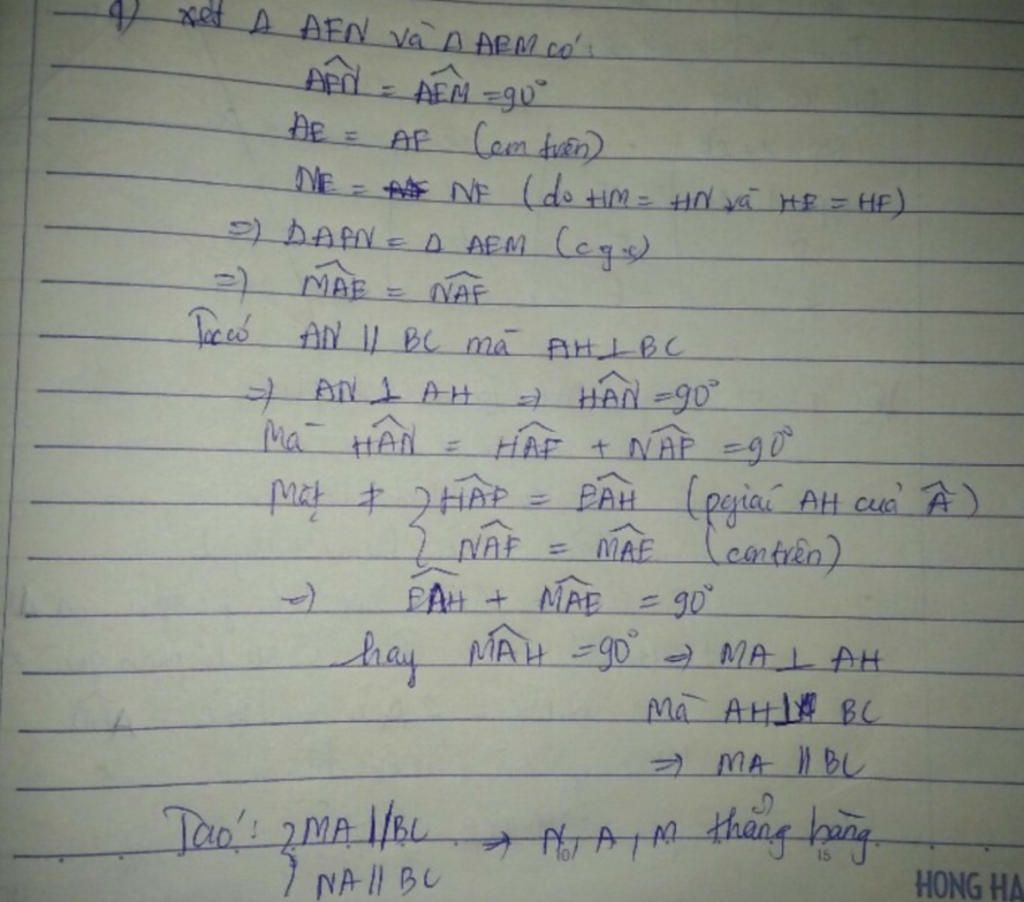 9) xét Δ AFN và Δ AEM có:
AFN = AEM = 90°
AE = AF (cm trên)
NE = NF (do HM = HN và HE = HF)
=> Δ AFN = Δ AEM (c g c)
=> MAE = NAF
Ta có AN // BC mà AH ⊥ BC
=> AN ⊥ AH => HAN = 90°
Mà HAN = HAF + NAF = 90°
Mặt ≠ { HAF = EAH (pgiác AH của A)
{ NAF = MAE (cm trên)
=> EAH + MAE = 90°
hay MAH = 90° => MA ⊥ AH
Mà AH ⊥ BC
=> MA // BC
Ta có: { MA // BC => N, A, M thẳng hàng
10 15
{ NA // BC
HONG HA